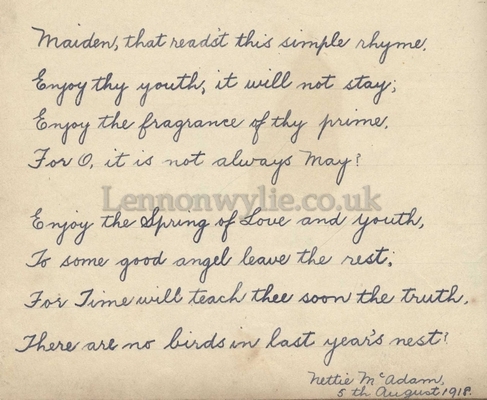 Maiden, that read'st this simple rhyme,
Enjoy thy youth, it will not stay;
Enjoy the fragrance of thy prime,
For O, it is not always May!
Lennonwylie.co.uk
Enjoy the Spring of Love and youth,
To some good angel leave the rest;
For Time will teach thee soon the truth,
There are no birds in last year's nest!
Nettie McAdam,
5th August 1918.